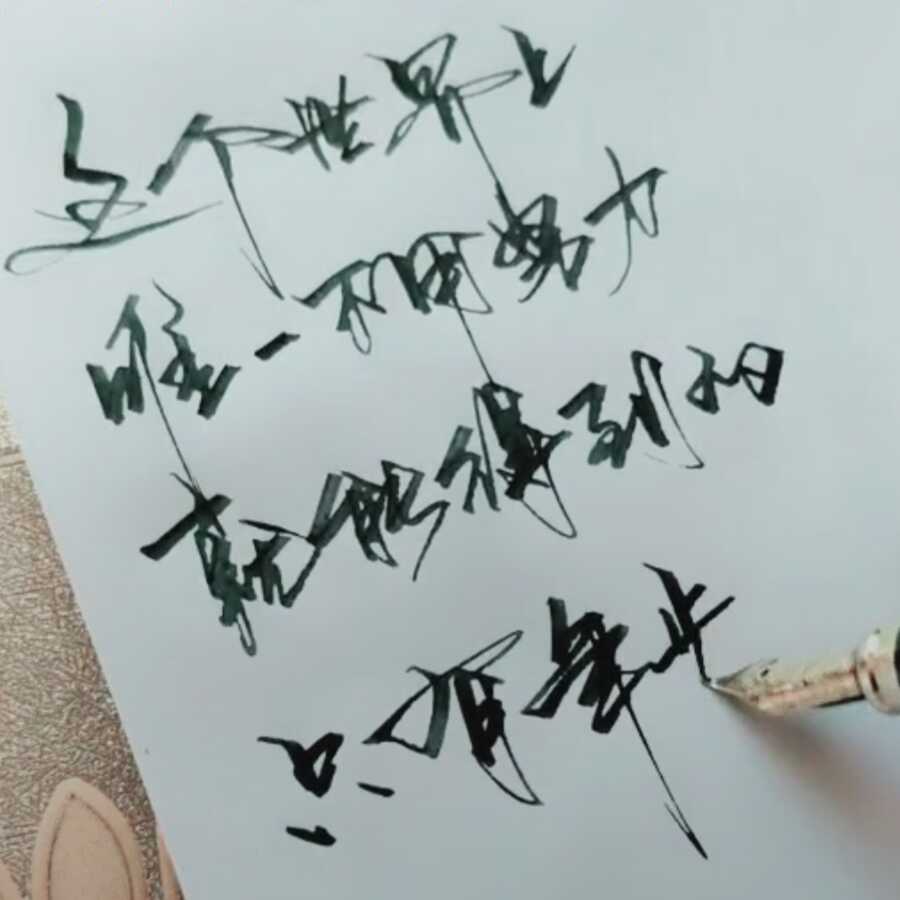 全个世界上
唯一不用努力
就能得到的
只有年龄